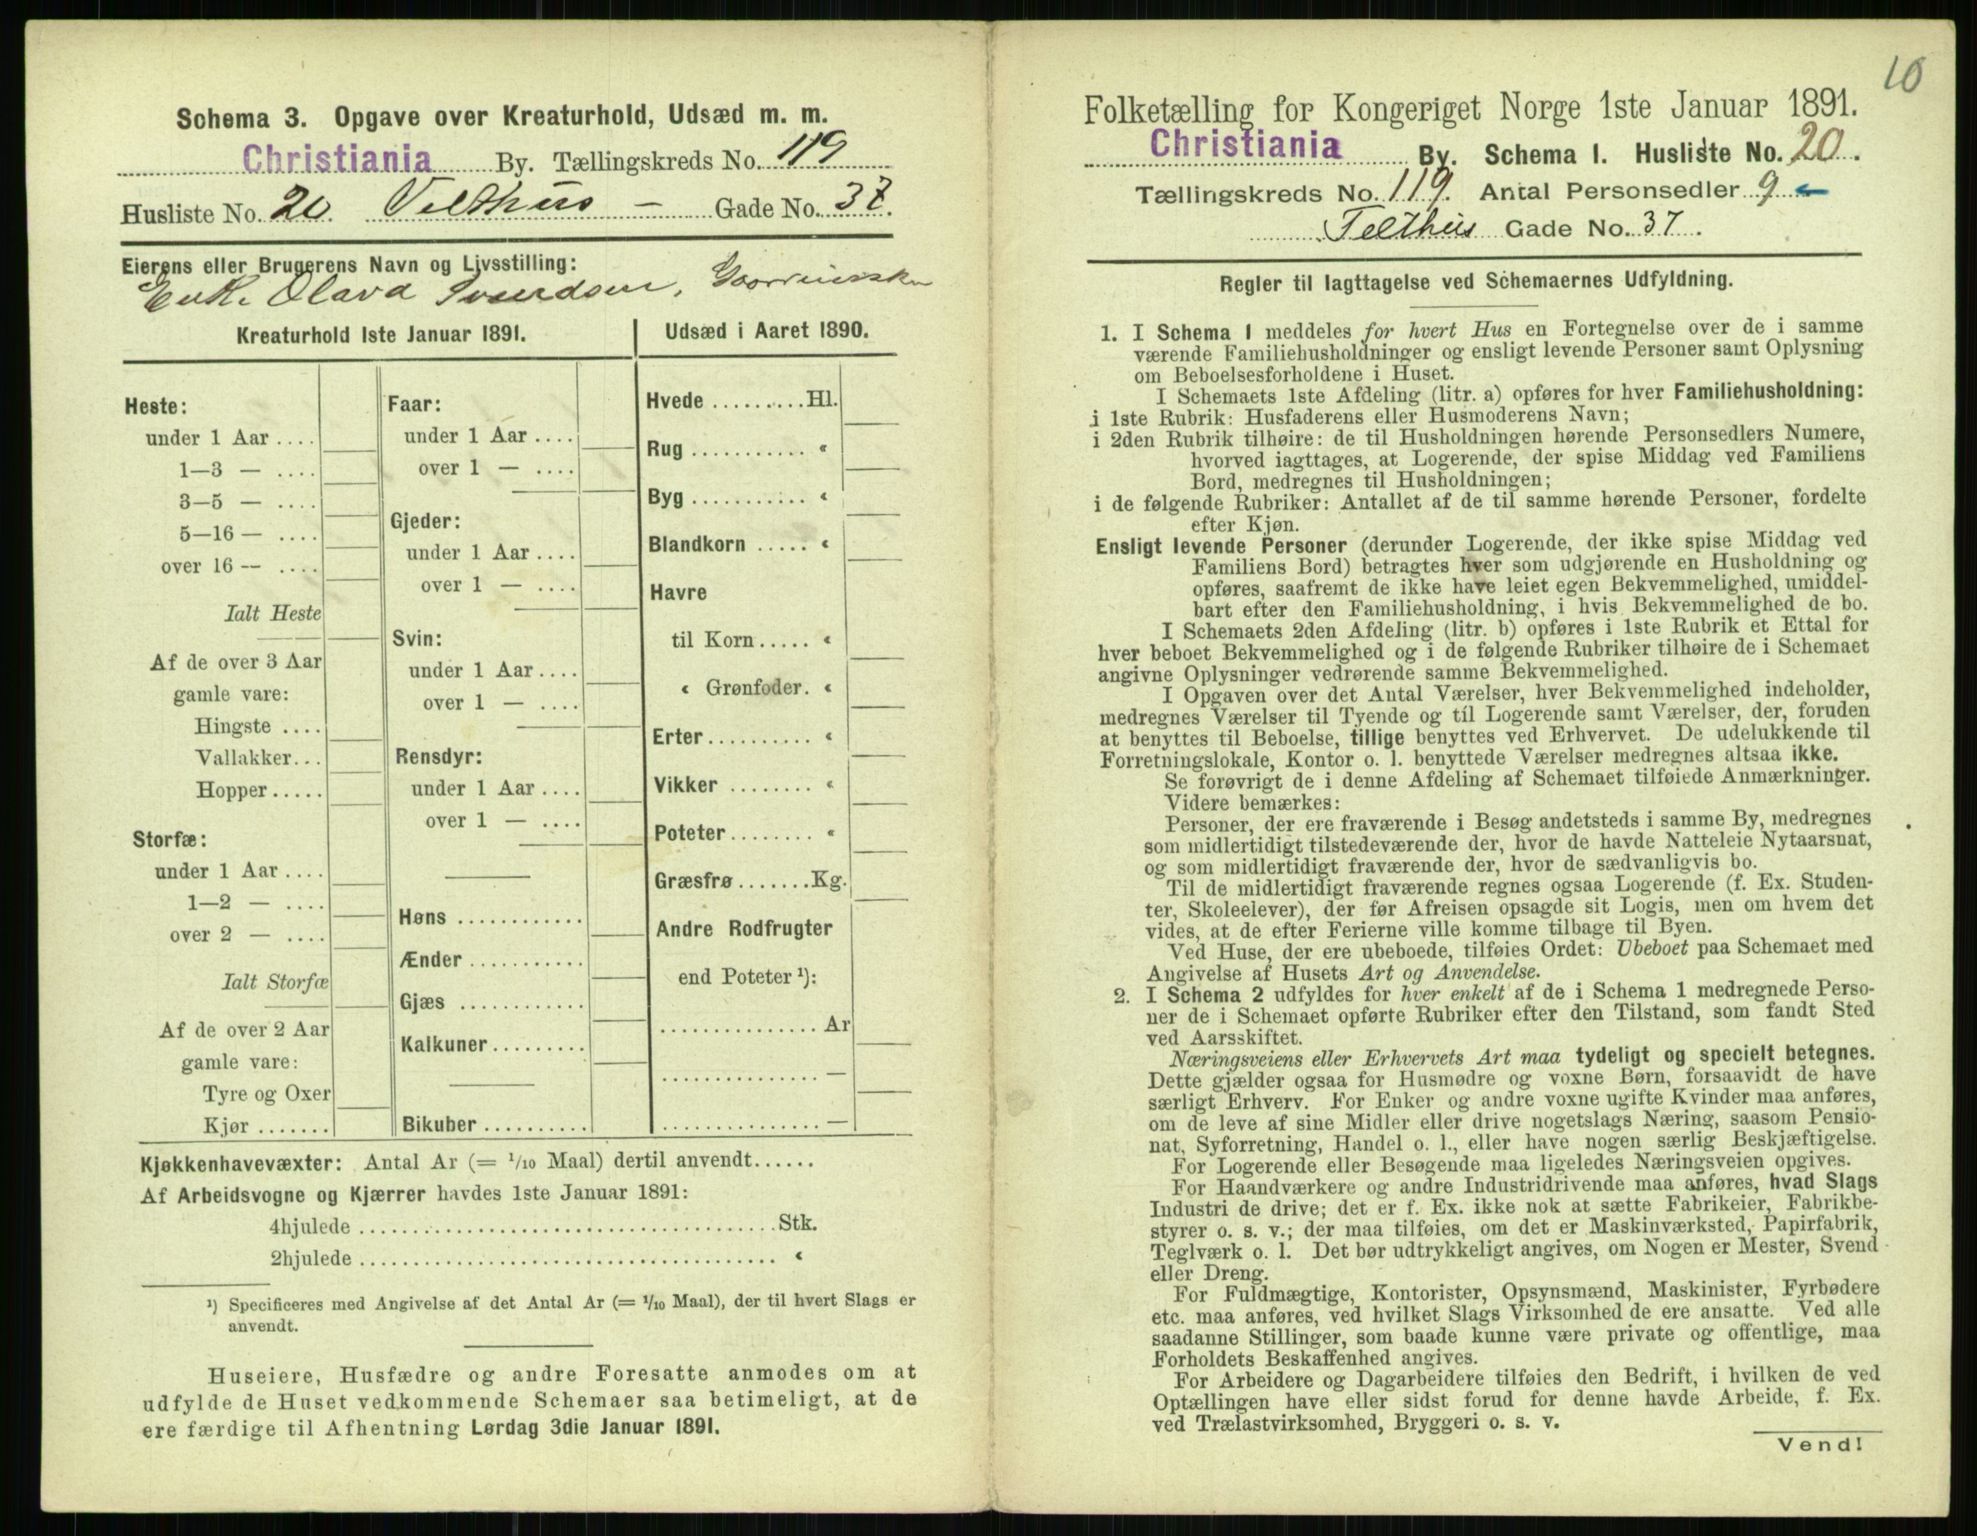 Schema 3. Opgave over Kreaturhold, Udsæd m. m.
Christiania By. Tællingskreds No. 119
Husliste No. 20. Velthus - Gade No. 37.
Eierens eller Brugerens Navn og Livsstilling:
Enke Olava Svendsen,
Kreaturhold 1ste Januar 1891.
Heste:
under 1 Aar ....
1—3 — ....
3—5 — ....
5—16 — ....
over 16 -- ....
Ialt Heste
Af de over 3 Aar
gamle vare:
Hingste ....
Vallakker...
Hopper.....
Storfæ:
under 1 Aar ....
1—2 — ....
over 2 — ....
Ialt Storfæ
Af de over 2 Aar
gamle vare:
Tyre og Oxer
Kjør .......
Faar:
under 1 Aar ....
over 1 — ....
Gjeder:
under 1 Aar ....
over 1 — ....
Svin:
under 1 Aar ....
over 1 — ....
Rensdyr:
under 1 Aar ....
over 1 — ....
Høns ............
Ænder ...........
Gjæs ............
Kalkuner.........
Bikuber ..........
Udsæd i Aaret 1890.
Hvede .........Hl.
Rug ........... «
Byg ........... «
Blandkorn ..... «
Havre
til Korn..... «
« Grønfoder. «
Erter.......... «
Vikker ........ «
Poteter........ «
Græsfrø.......Kg.
Andre Rodfrugter
end Poteter ¹):
............... Ar
............... —
............... —
Kjøkkenhavevæxter: Antal Ar (= 1/10 Maal) dertil anvendt......
Af Arbeidsvogne og Kjærrer havdes 1ste Januar 1891:
4hjulede ........................................Stk.
2hjulede ........................................ «
¹) Specificeres med Angivelse af det Antal Ar (= 1/10 Maal), der til hvert Slags er
anvendt.
Huseiere, Husfædre og andre Foresatte anmodes om at
udfylde de Huset vedkommende Schemaer saa betimeligt, at de
ere færdige til Afhentning Lørdag 3die Januar 1891.
10
Folketælling for Kongeriget Norge 1ste Januar 1891.
Christiania By. Schema 1. Husliste No. 20.
Tællingskreds No. 119. Antal Personsedler 9
Felthus Gade No. 37.
Regler til Iagttagelse ved Schemaernes Udfyldning.
1. I Schema 1 meddeles for hvert Hus en Fortegnelse over de i samme
værende Familiehusholdninger og ensligt levende Personer samt Oplysning
om Beboelsesforholdene i Huset.
I Schemaets 1ste Afdeling (litr. a) opføres for hver Familiehusholdning:
i 1ste Rubrik: Husfaderens eller Husmoderens Navn;
i 2den Rubrik tilhøire: de til Husholdningen hørende Personsedlers Numere,
hvorved iagttages, at Logerende, der spise Middag ved Familiens
Bord, medregnes til Husholdningen;
i de følgende Rubriker: Antallet af de til samme hørende Personer, fordelte
efter Kjøn.
Ensligt levende Personer (derunder Logerende, der ikke spise Middag ved
Familiens Bord) betragtes hver som udgjørende en Husholdning og
opføres, saafremt de ikke have leiet egen Bekvemmelighed, umiddel-
bart efter den Familiehusholdning, i hvis Bekvemmelighed de bo.
I Schemaets 2den Afdeling (litr. b) opføres i 1ste Rubrik et Ettal for
hver beboet Bekvemmelighed og i de følgende Rubriker tilhøire de i Schemaet
angivne Oplysninger vedrørende samme Bekvemmelighed.
I Opgaven over det Antal Værelser, hver Bekvemmelighed indeholder,
medregnes Værelser til Tyende og til Logerende samt Værelser, der, foruden
at benyttes til Beboelse, tillige benyttes ved Erhvervet. De udelukkende til
Forretningslokale, Kontor o. l. benyttede Værelser medregnes altsaa ikke.
Se forøvrigt de i denne Afdeling af Schemaet tilføiede Anmærkninger.
Videre bemærkes:
Personer, der ere fraværende i Besøg andetsteds i samme By, medregnes
som midlertidigt tilstedeværende der, hvor de havde Natteleie Nytaarsnat,
og som midlertidigt fraværende der, hvor de sædvanligvis bo.
Til de midlertidigt fraværende regnes ogsaa Logerende (f. Ex. Studen-
ter, Skoleelever), der før Afreisen opsagde sit Logis, men om hvem det
vides, at de efter Ferierne ville komme tilbage til Byen.
Ved Huse, der ere ubeboede, tilføies Ordet: Ubeboet paa Schemaet med
Angivelse af Husets Art og Anvendelse.
2. I Schema 2 udfyldes for hver enkelt af de i Schema 1 medregnede Perso-
ner de i Schemaet opførte Rubriker efter den Tilstand, som fandt Sted
ved Aarsskiftet.
Næringsveiens eller Erhvervets Art maa tydeligt og specielt betegnes.
Dette gjælder ogsaa for Husmødre og voxne Børn, forsaavidt de have
særligt Erhverv. For Enker og andre voxne ugifte Kvinder maa anføres,
om de leve af sine Midler eller drive nogetslags Næring, saasom Pensio-
nat, Syforretning, Handel o. l., eller have nogen særlig Beskjæftigelse.
For Logerende eller Besøgende maa ligeledes Næringsveien opgives.
For Haandværkere og andre Industridrivende maa anføres, hvad Slags
Industri de drive; det er f. Ex. ikke nok at sætte Fabrikeier, Fabrikbe-
styrer o. s. v.; der maa tilføies, om det er Maskinværksted, Papirfabrik,
Teglværk o. l. Det bør udtrykkeligt angives, om Nogen er Mester, Svend
eller Dreng.
For Fuldmægtige, Kontorister, Opsynsmænd, Maskinister, Fyrbødere
etc. maa anføres, ved hvilket Slags Virksomhed de ere ansatte. Ved alle
saadanne Stillinger, som baade kunne være private og offentlige, maa
Forholdets Beskaffenhed angives.
For Arbeidere og Dagarbeidere tilføies den Bedrift, i hvilken de ved
Optællingen have eller sidst forud for denne havde Arbeide, f. Ex.
ved Trælastvirksomhed, Bryggeri o. s. v.
Vend!